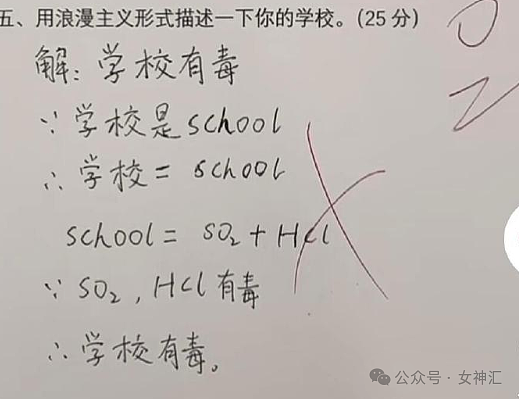 五、用浪漫主义形式描述一下你的学校。(25 分)
解: 学校有毒
∵ 学校是 school
∴ 学校 = school
school = SO₂ + HCl
∵ SO₂, HCl 有毒
∴ 学校有毒。
公众号 · 女神汇